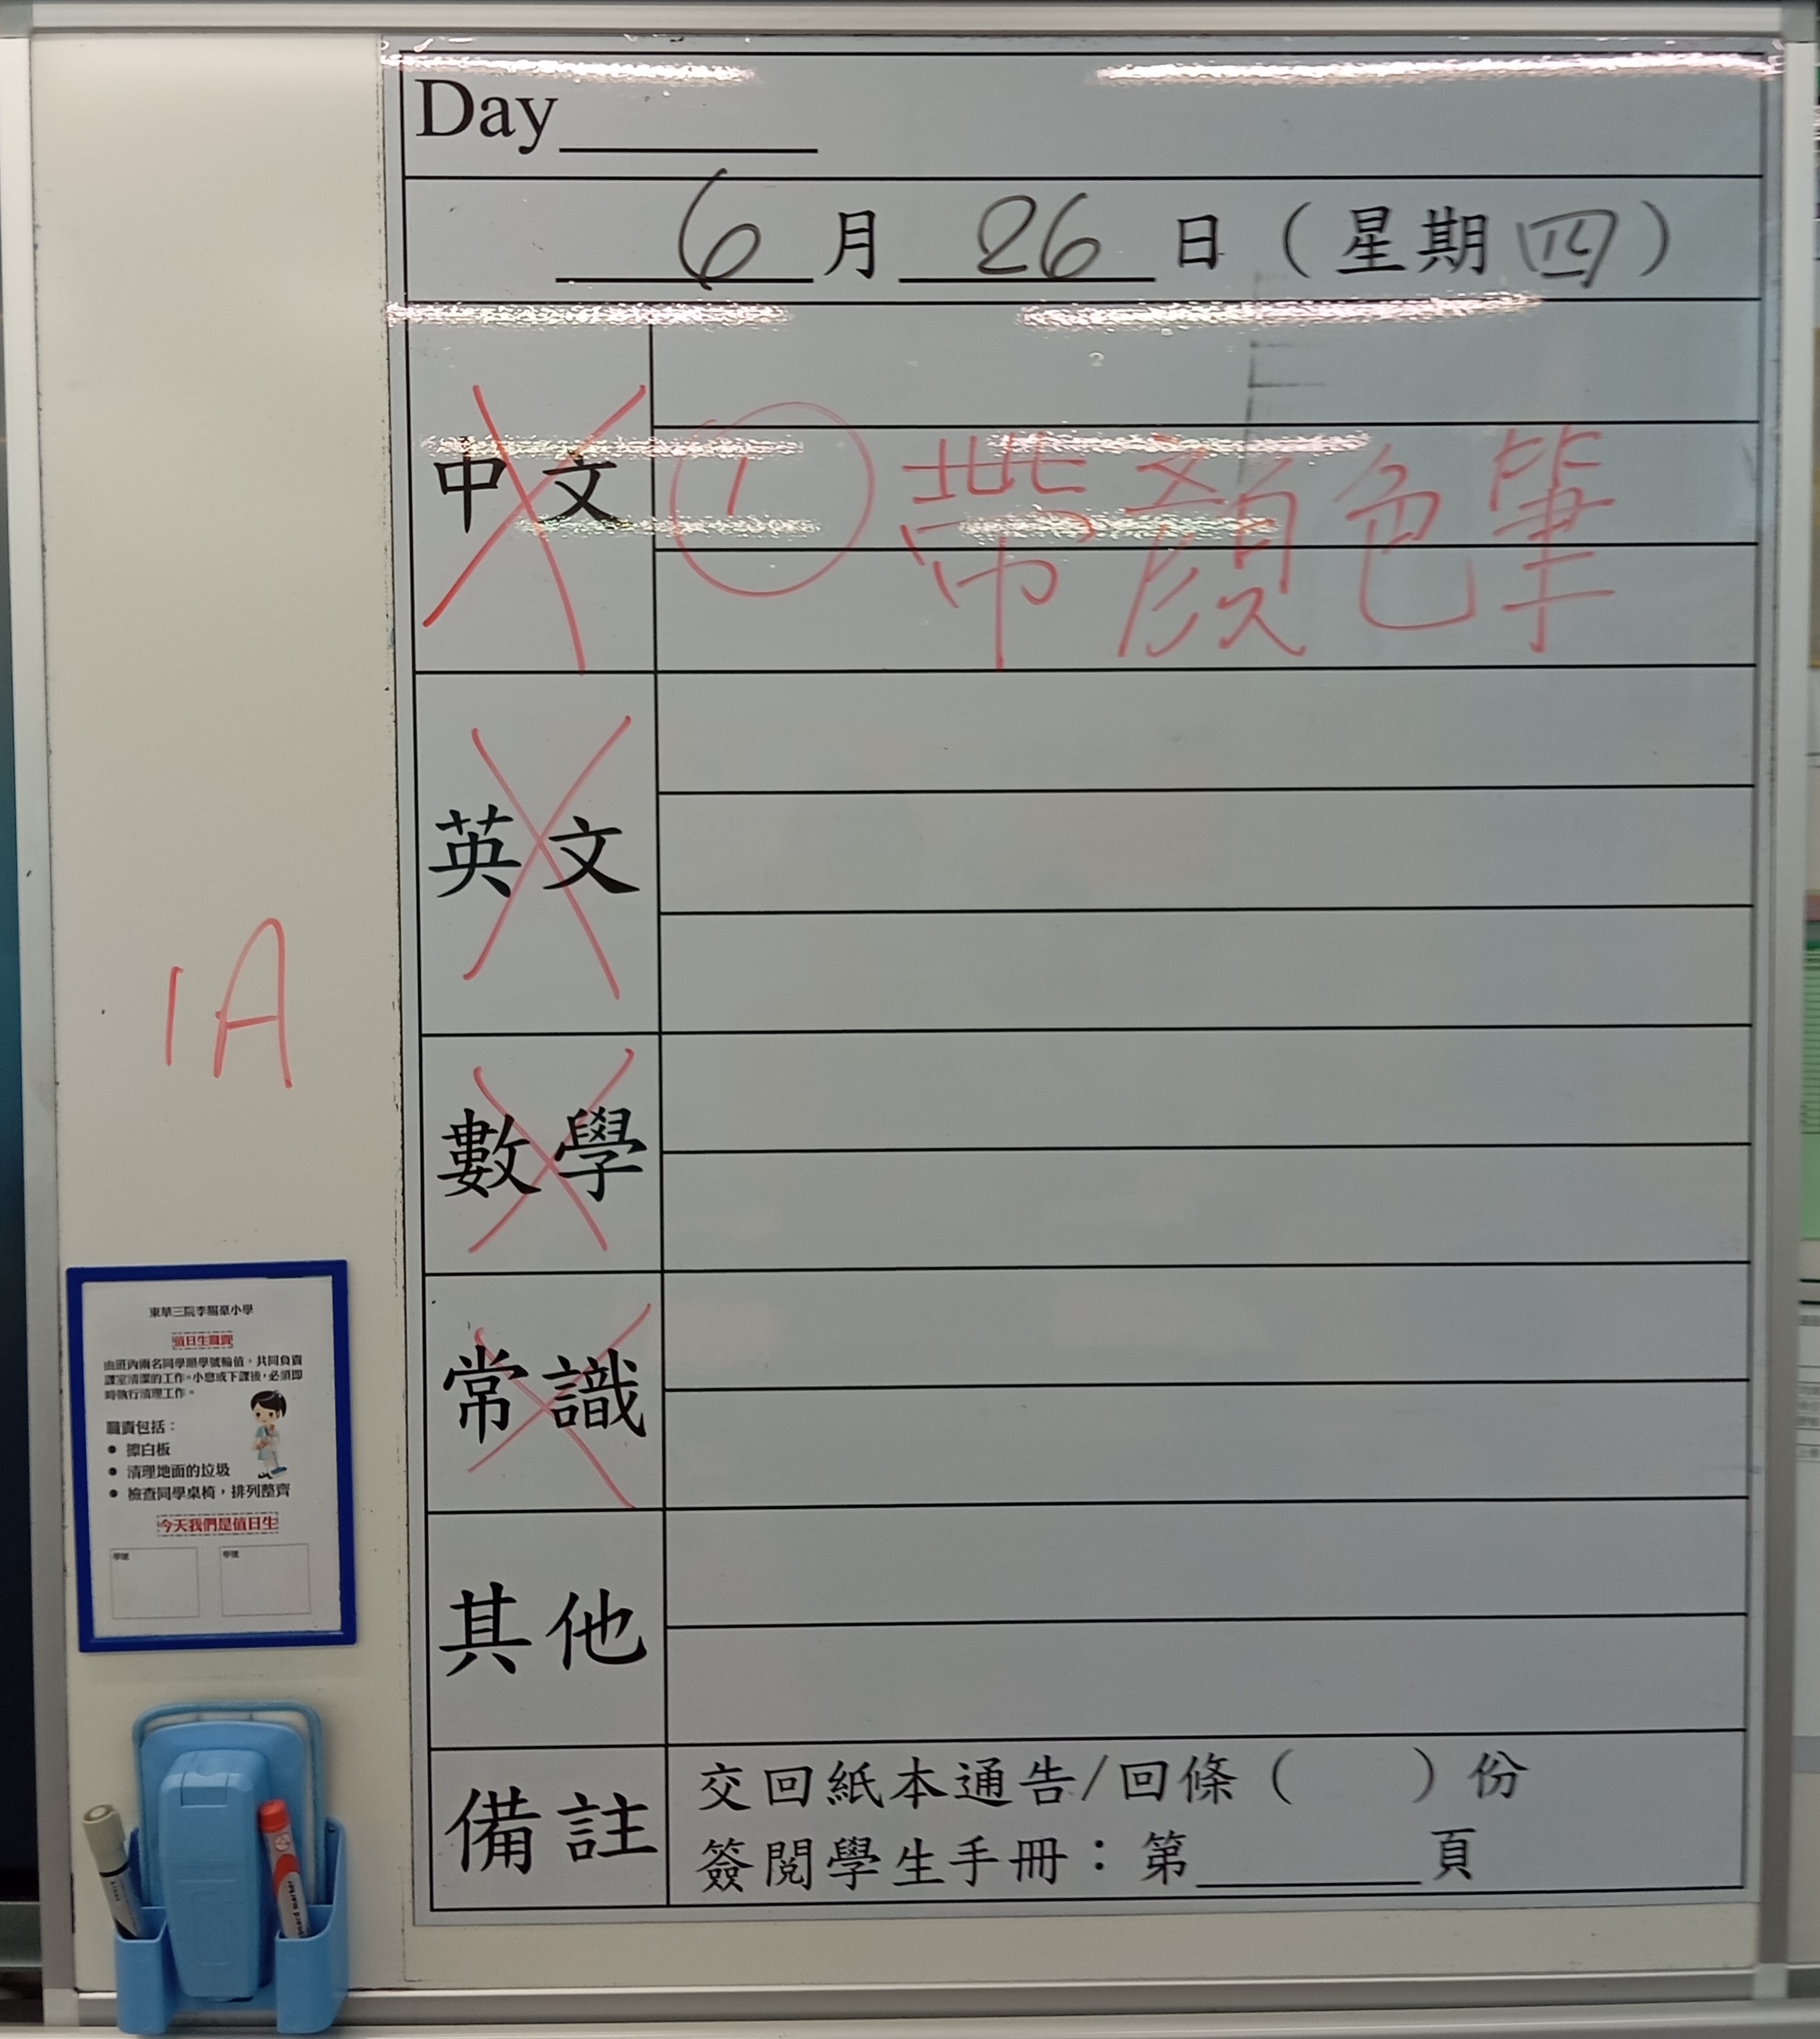 Day
6月26日（星期四）
中文
① 帶顏色筆
英文
數學
常識
其他
備註
交回紙本通告/回條（ ）份
簽閱學生手冊：第 頁
1A
東華三院李賜豪小學
值日生職責
由班內兩名同學順學號輪值，共同負責
課室清潔的工作。小息或下課後，必須即
時執行清理工作。
職責包括：
● 擦白板
● 清理地面的垃圾
● 檢查同學桌椅，排列整齊
今天我們是值日生
學號 學號